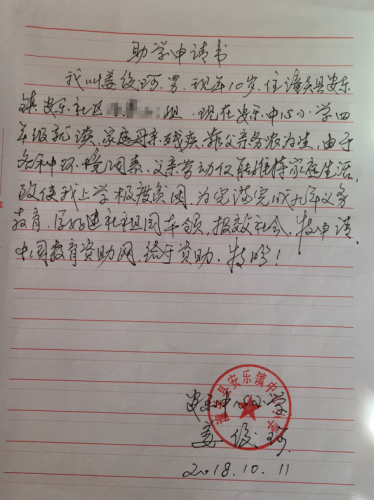 助学申请书
我叫姜俊珂，男，现年10岁，住潼关县安乐
镇安乐社区 组，现在安乐中心小学四
年级就读，家庭母亲残疾，靠父亲务农为生，由于
各种环境因素，父亲劳动仅能维持家庭生活，
致使我上学极度贫困，为完满完成九年义务
教育，将来建社祖国本领，报效社会，特申请
中国教育资助网，给于资助，特盼！
安乐中心小学
姜俊珂
2018.10.11
县安乐镇中心小学